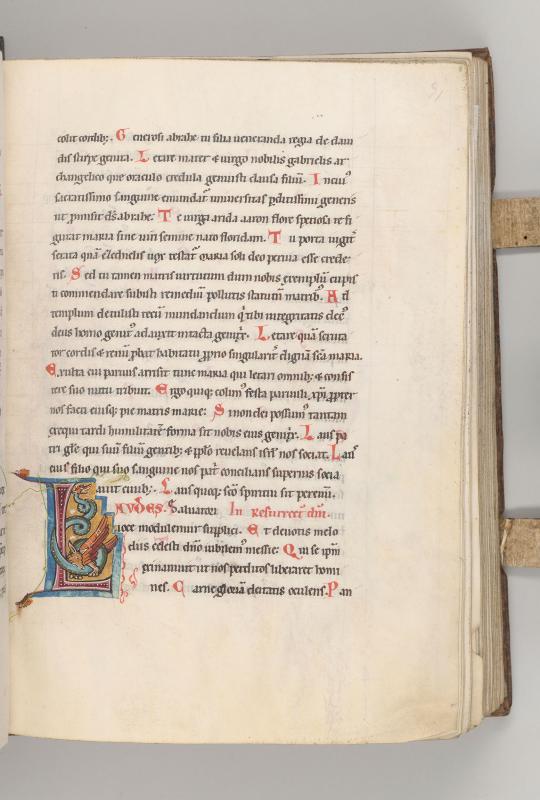 colit cordib;. Generosi abrahe tu filia ueneranda regia de dauı
dis stirpe genita. Letare mater & uirgo nobilis gabrielis ar
changelico que oraculo credula genuisti clausa filiũ. In cuiꝰ
sacratissimo sanguine emundat᷑ uniuersitas ꝑditissimi generis
ut ꝓmisit d̃s abrahe. Te uirga arida aaron flore speciosa te fi
gurat maria sine uiri semine nato floridam. Tu porta iugit᷑
serata quã ezechielis uox testat᷑ maria soli deo peruia esse crede
ris. Sed tu tamen matris uirtutum dum nobis exemplũ cupis
ti commendare subisti remediũ pollutis statutũ matrib;. Ad
templum detulisti tecũ mundandum q̇ tibi integritatis decꝰ
deus homo genitꝰ adauxit intacta genit᷑x. Letare quã scruta
tor cordis & renũ ꝓbat habitatu ꝓprio singularit᷑ dignã scã maria.
Exulta cui paruus arrisit tunc maria qui letari omnib; & consis
tere suo nutu tribuit. Ergo quiq; colimꝰ festa paruuli xp̃i ꝓpter
nos facti eiusq; pie matris marie. Si non dei possumꝰ tantam
exequi tardi humilitatẽ forma sit nobis eius genit᷑x. Laus pa
tri glĩe qui suũ filiũ gentib; & pplõ reuelans isrl̃ nos sociat. Lausꝰ
eius filio qui suo sanguine nos patri concilians supernis socia
uit ciuib;. Laus quoq; scõ spiritui sit perenñi.
LAVDES Saluatori In Resurrect̃ dñi.
uoce modulemur supplici. Et deuotis melo
diis celesti dñõ iubilemꝰ messie. Qui se ip̃m
exinaniuit ut nos perditos liberaret homi
nes. Carne gloriã deitatis occulens. Pan